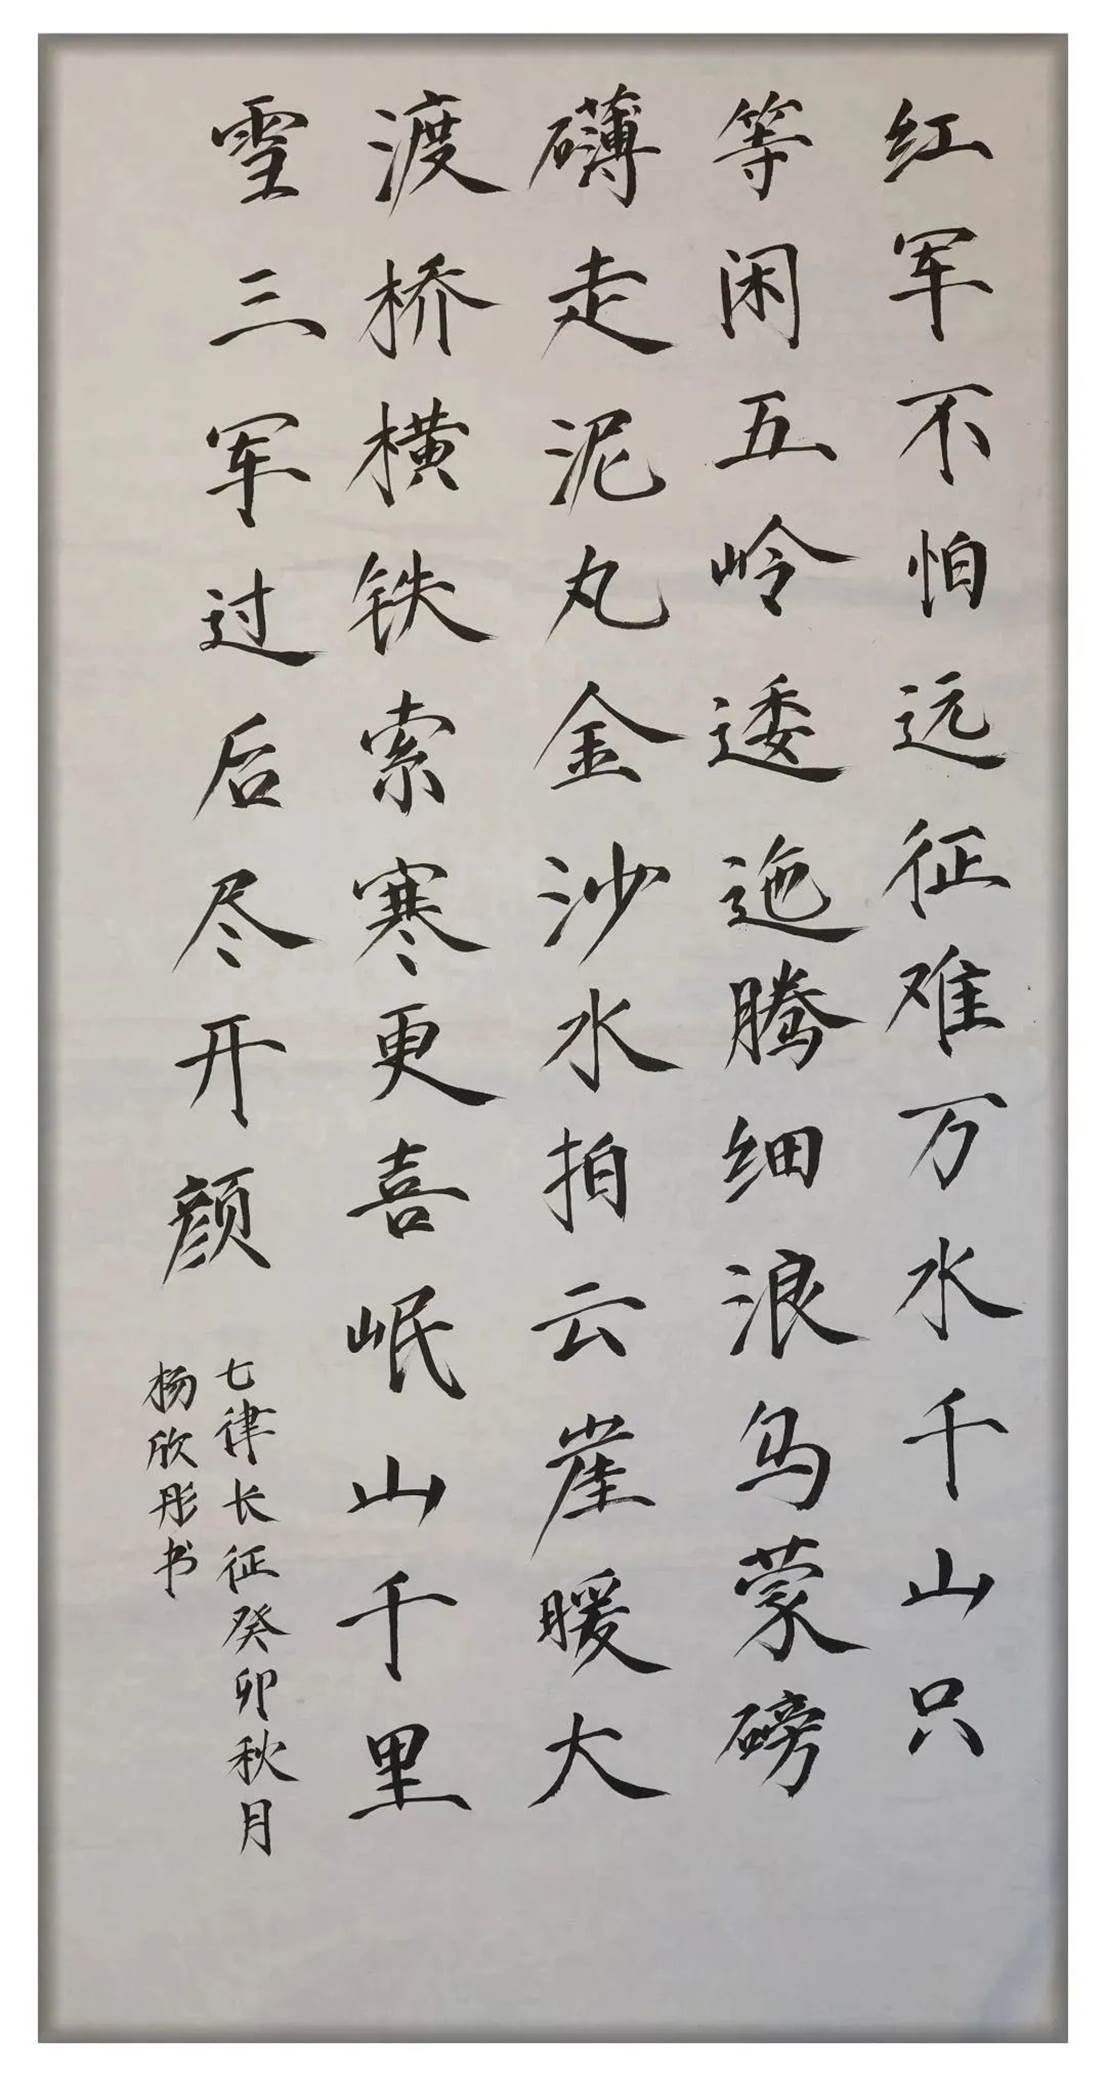 红军不怕远征难万水千山只
等闲五岭逶迤腾细浪乌蒙磅
礴走泥丸金沙水拍云崖暖大
渡桥横铁索寒更喜岷山千里
雪三军过后尽开颜
七律长征癸卯秋月
杨欣彤书